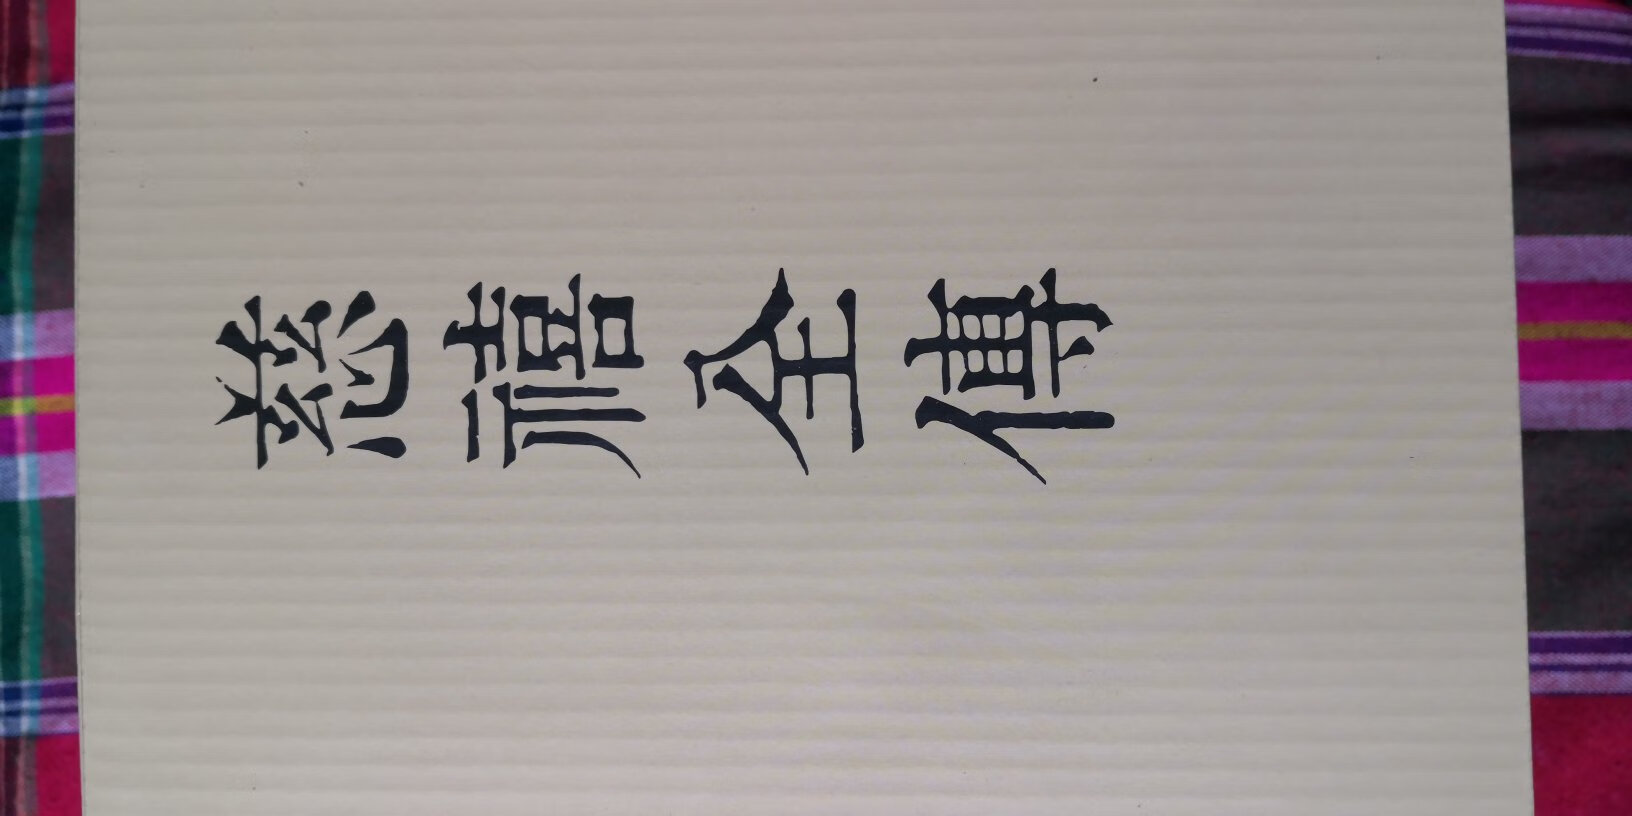 慈禧全傳